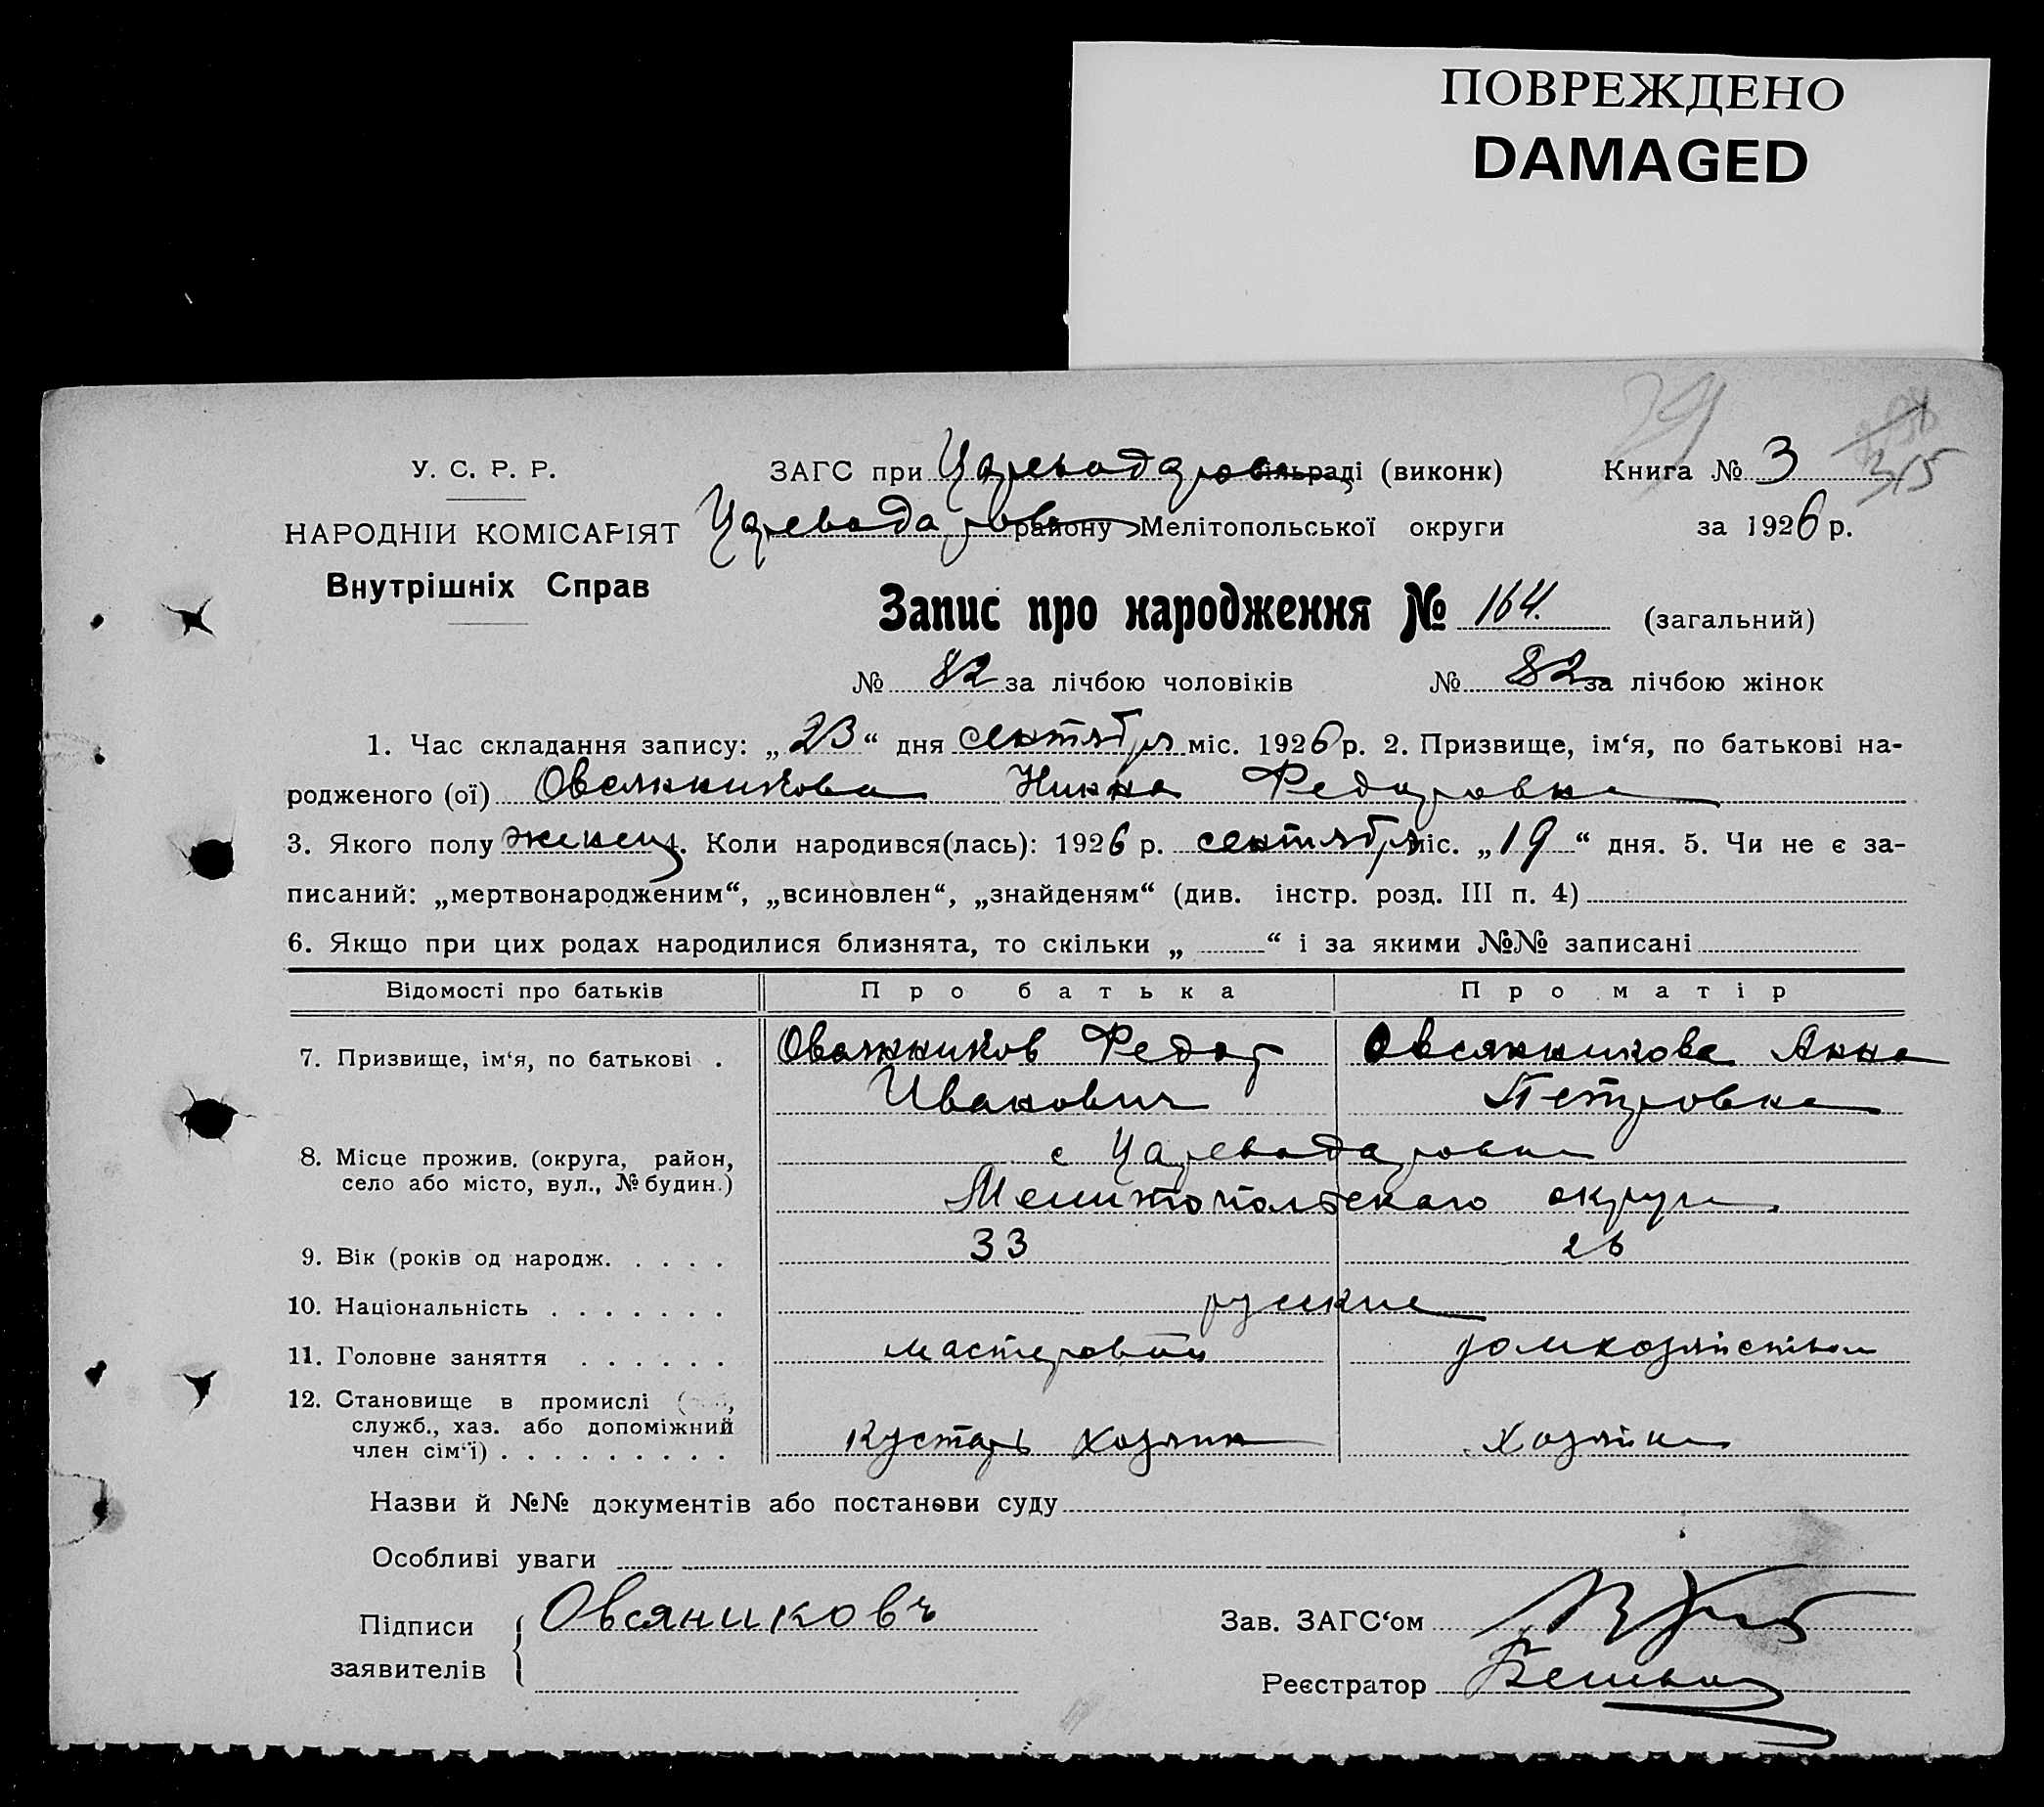 ПОВРЕЖДЕНО
DAMAGED
У. С. Р. Р. ЗАГС при Царевадаровс сільраді (виконк) Книга № 3 315
НАРОДНІЙ КОМІСАРІЯТ Царевадаровс району Мелітопольської округи за 1926 р.
Внутрішніх Справ
Запис про народження № 164. (загальний)
№ 82 за лічбою чоловіків № 82 за лічбою жінок
1. Час складання запису: „23“ дня сентября міс. 1926 р. 2. Призвище, ім‘я, по батькові на-
родженого (ої) Овсянникова Нинна Федаровна
3. Якого полу женск. Коли народився(лась): 1926 р. сентября міс. „19“ дня. 5. Чи не є за-
писаний: „мертвонародженим“, „всиновлен“, „знайденям“ (див. інстр. розд. III п. 4)
6. Якщо при цих родах народилися близнята, то скільки „ “ і за якими №№ записані
Відомості про батьків Про батька Про матір
7. Призвище, ім‘я, по батькові . Овсянников Федор Овсянникова Анна
Иванович Петровна
8. Місце прожив. (округа, район, с Царевадаровка
село або місто, вул., № будин.) Мелитопольскаго округа
9. Вік (років од народж. . . . . 33 26
10. Національність . . . . . . . русские
11. Головне заняття . . . . . . мастеровой домхозяйством
12. Становище в промислі
служб., хаз. або допоміжний кустарь хозяин хозяйка
член сім‘ї) . . . . . . . . .
Назви й №№ документів або постанови суду
Особливі уваги
Підписи Овсяниковъ Зав. ЗАГС‘ом
заявителів Реєстратор